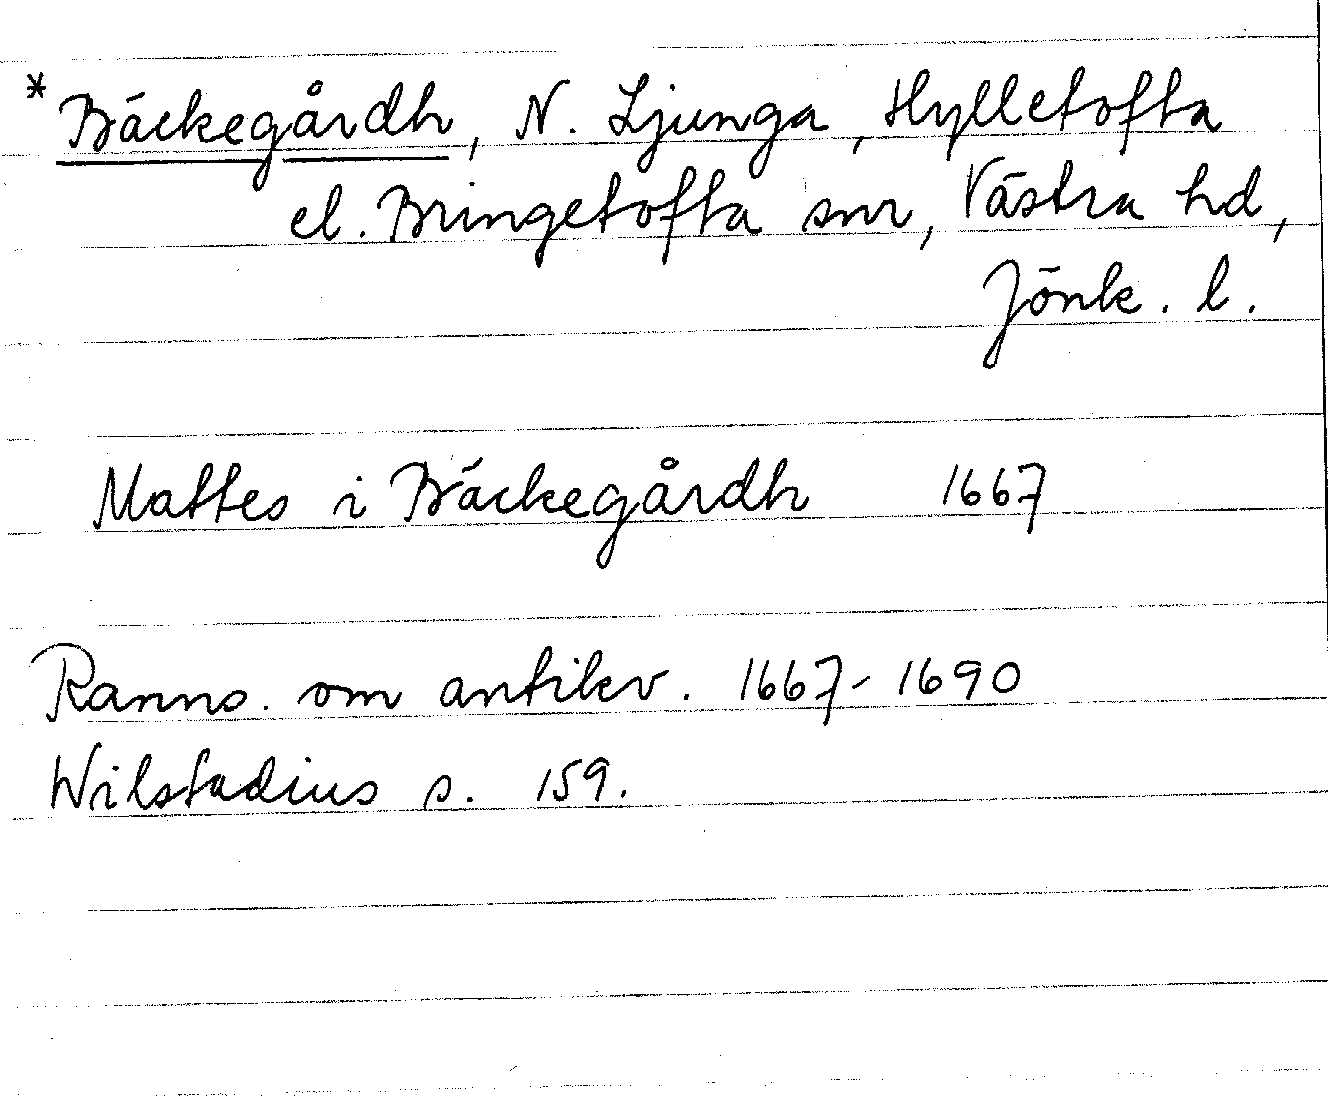 * Bäckegårdh, N. Ljunga, Hylletofta
el. Bringetofta snr, Västra hd,
Jönk. l.
Mattes i Bäckegårdh 1667
Ranns. om antikv. 1667-1690
Wilstadius s. 159.